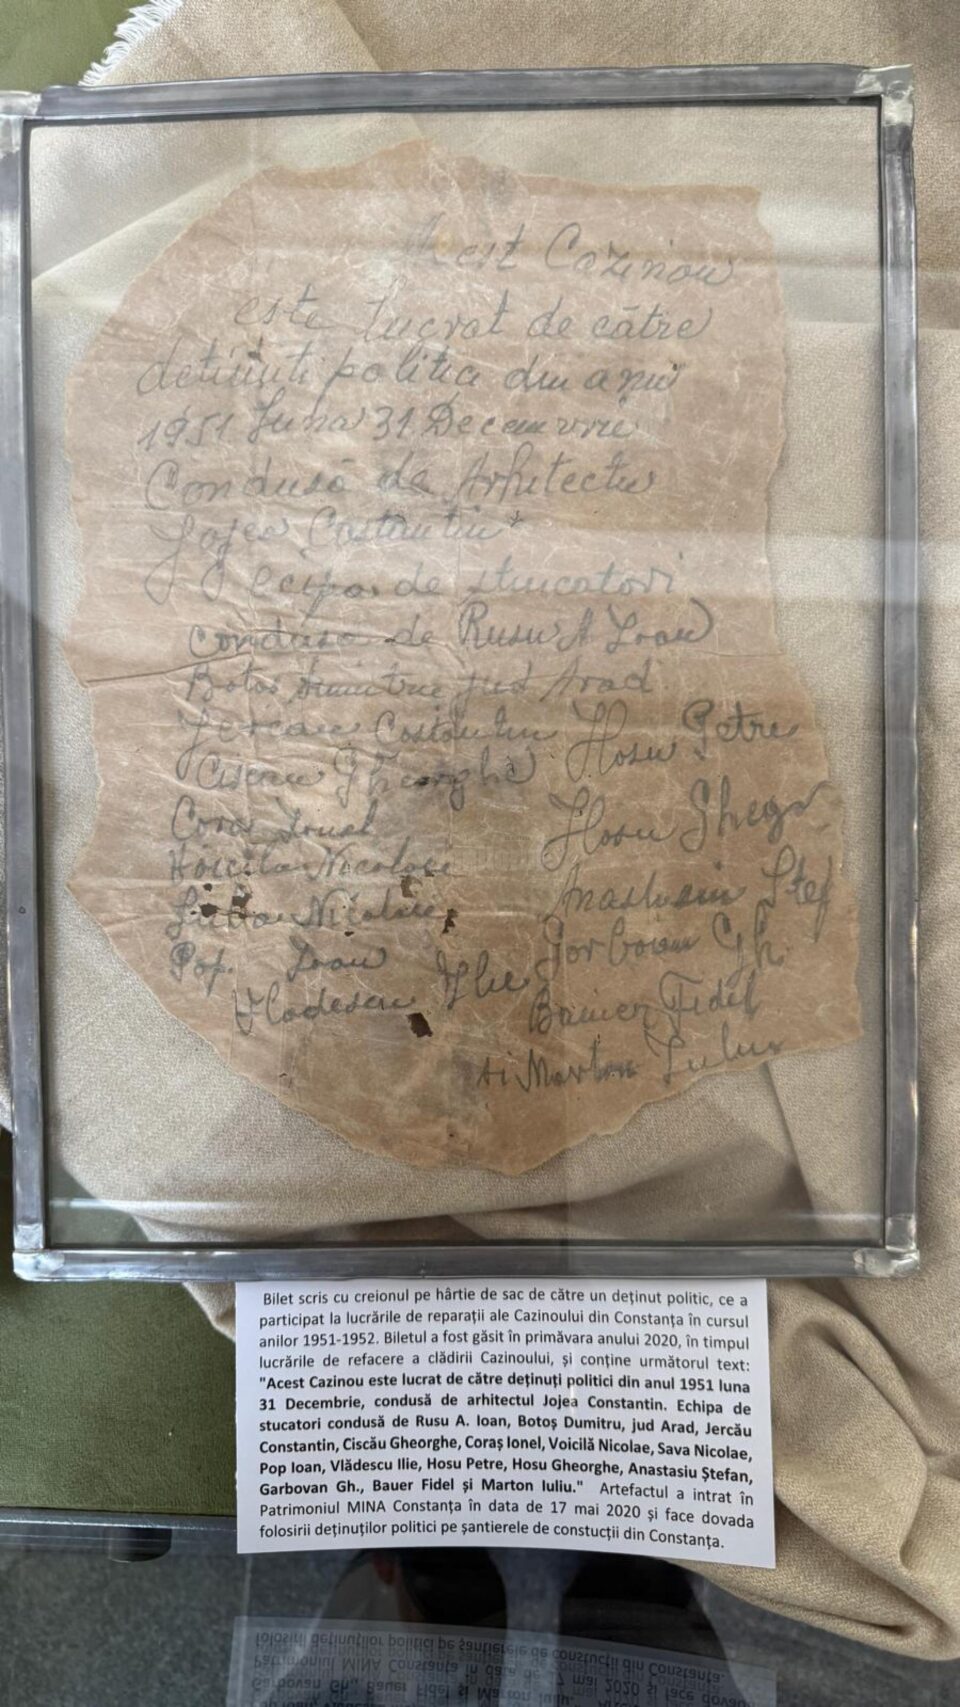 Acest Cazinou
este lucrat de către
detinuti politici din anu
1951 Luna 31 Decemvrie
Condusă de Arhitectu
Jojea Costantin
Ecipa de stucatori
condusă de Rusu A Ioan
Botos Dumitru jud Arad
Jercau Costantin Hosu Petre
Ciscau Gheorghe
Coras Ionel Hosu Ghegr
Voicila Nicolae
Anastasiu Stef
Sava Nicolae
Gorbovan Gh.
Pop. Ioan
Vladescu Ilie
Bauier Fidel
si Marton Iuliu
Bilet scris cu creionul pe hârtie de sac de către un deținut politic, ce a
participat la lucrările de reparații ale Cazinoului din Constanța în cursul
anilor 1951-1952. Biletul a fost găsit în primăvara anului 2020, în timpul
lucrările de refacere a clădirii Cazinoului, și conține următorul text:
"Acest Cazinou este lucrat de către deținuți politici din anul 1951 luna
31 Decembrie, condusă de arhitectul Jojea Constantin. Echipa de
stucatori condusă de Rusu A. Ioan, Botoș Dumitru, jud Arad, Jercău
Constantin, Ciscău Gheorghe, Coraș Ionel, Voicilă Nicolae, Sava Nicolae,
Pop Ioan, Vlădescu Ilie, Hosu Petre, Hosu Gheorghe, Anastasiu Ștefan,
Garbovan Gh., Bauer Fidel și Marton Iuliu." Artefactul a intrat în
Patrimoniul MINA Constanța în data de 17 mai 2020 și face dovada
folosirii deținuților politici pe șantierele de constucții din Constanța.